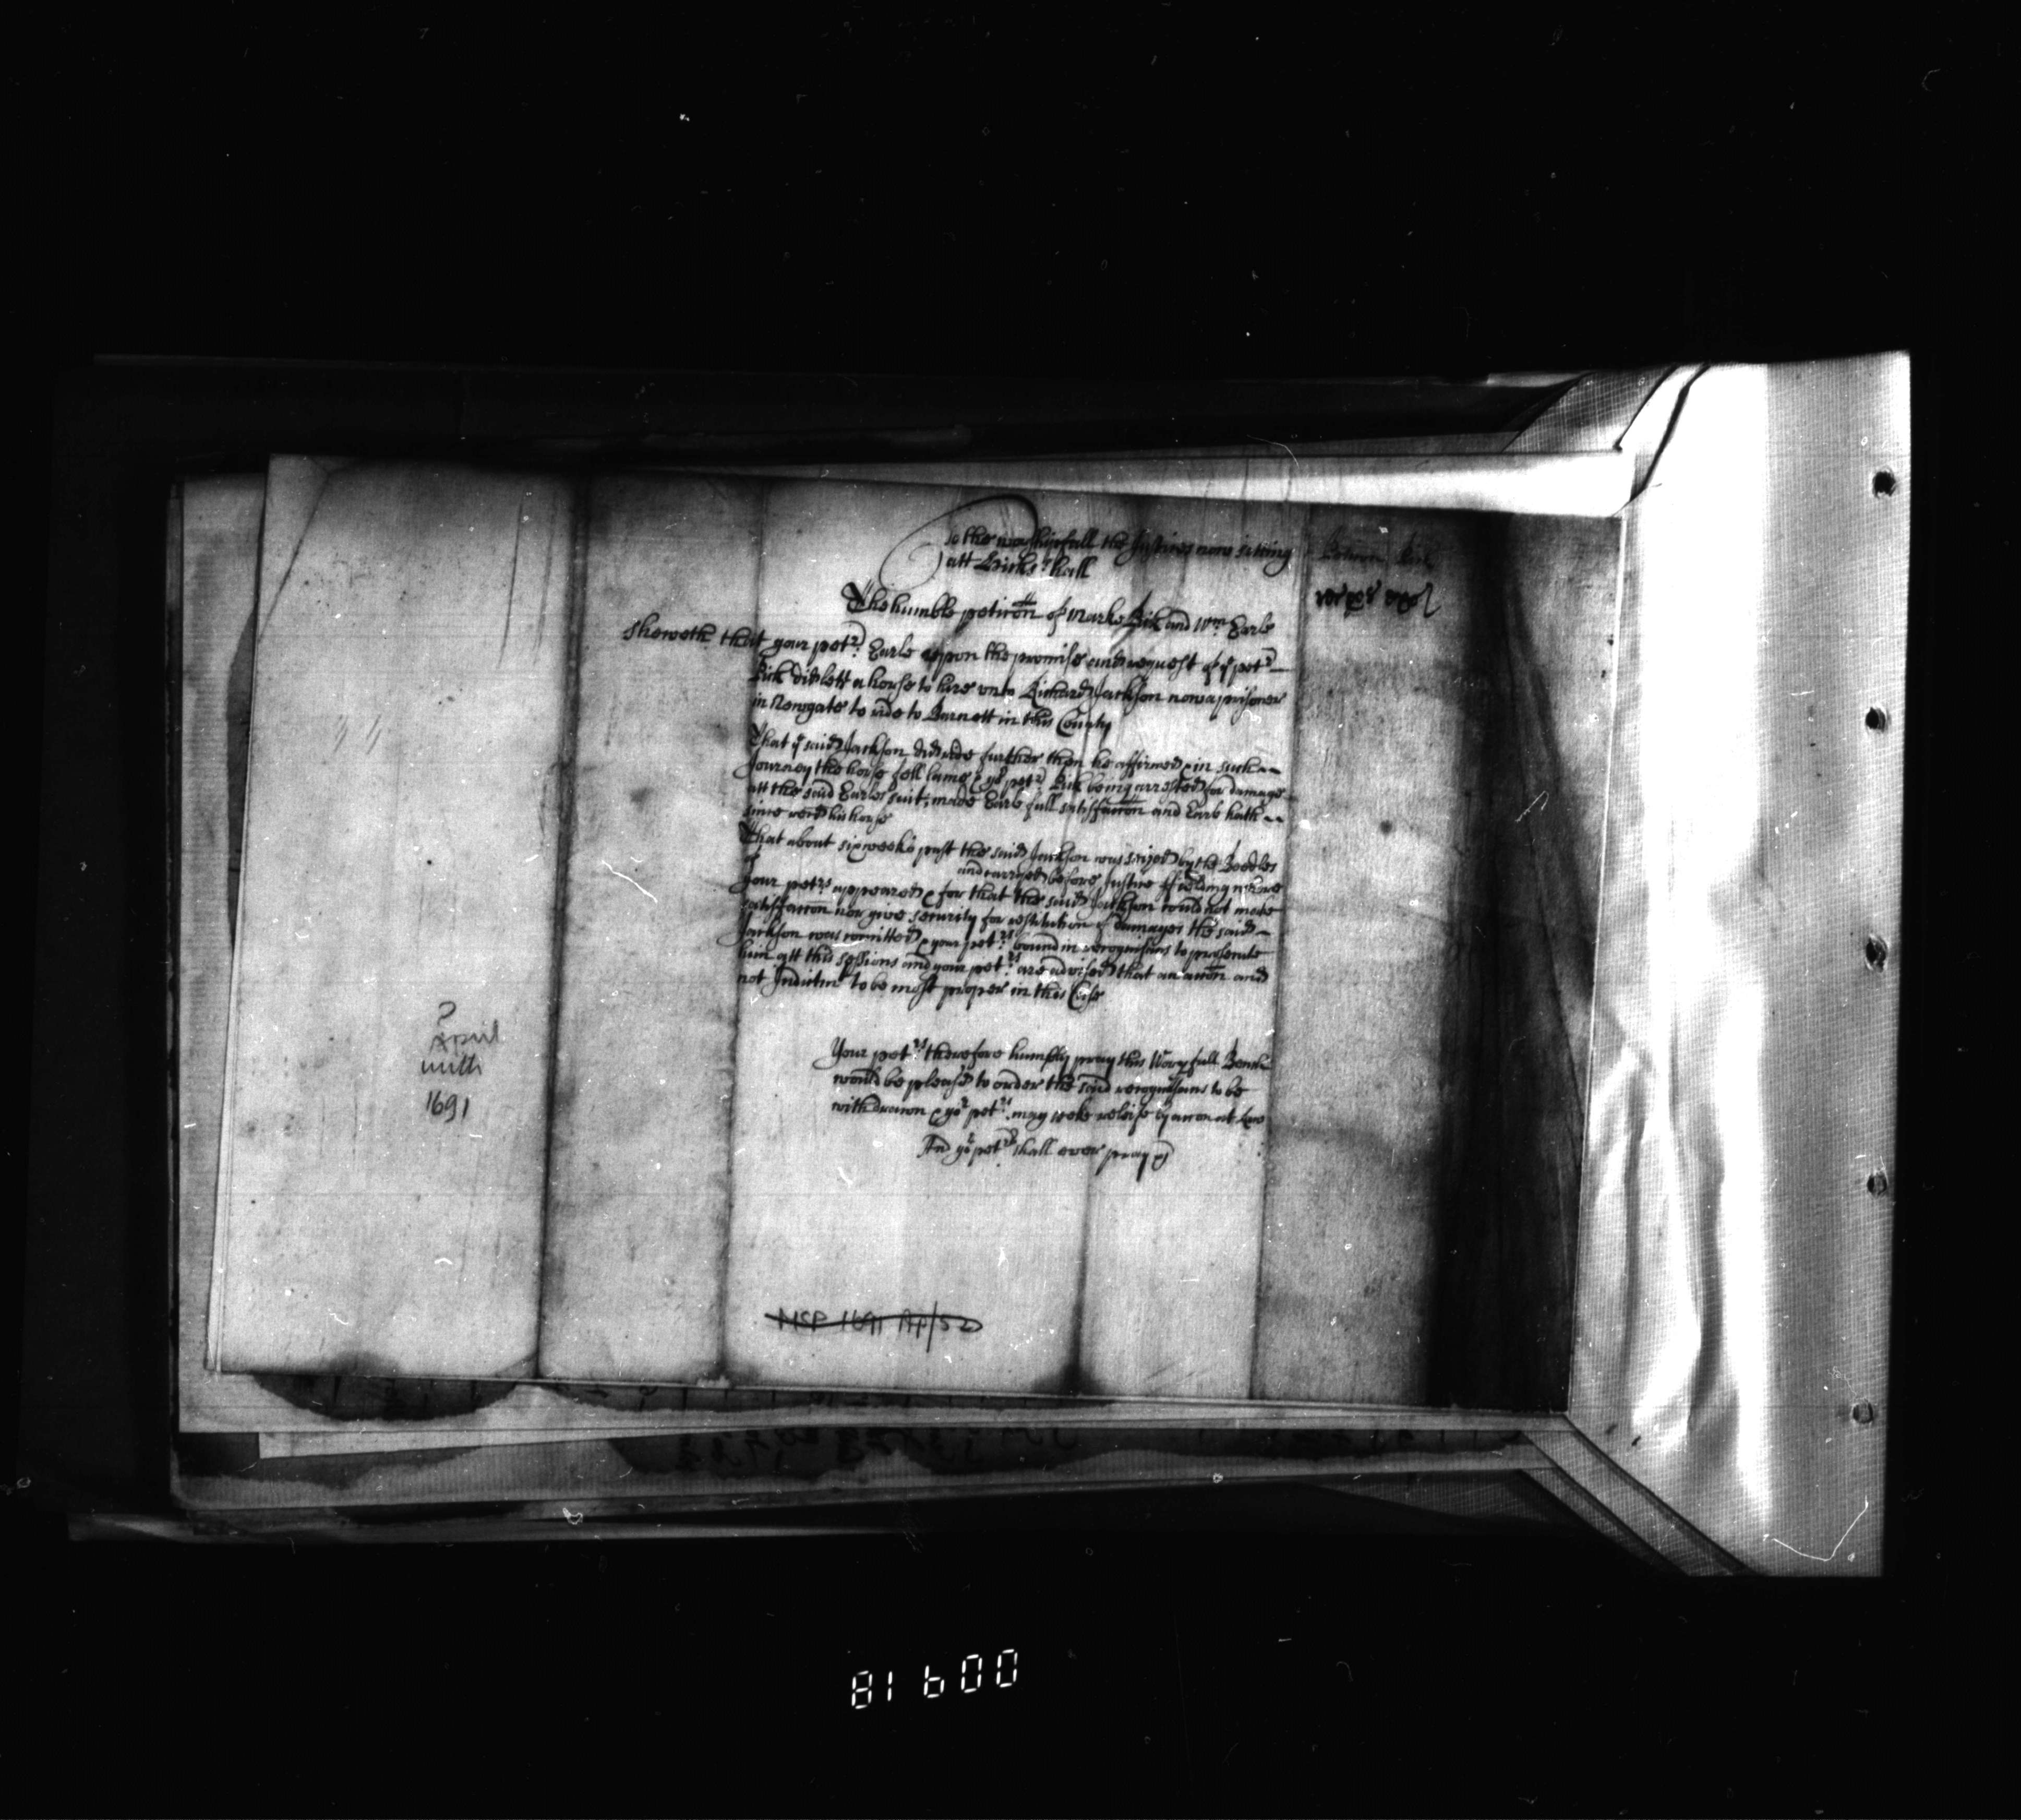 To the worshipfull the Justices now sitting
att Hicks's hall
The humble peticon of Marke Bick and Wm Earle
Sheweth that your petr. Earle upon the promise and request of yr petr
Bick did lett a horse to hire vnto Richard Jackson now a prisoner
in Newgate to ride to Barnett in this County
That ye said Jackson did ride further then he affirmed & in such
Journey the horse fell lame & yor petr. Bick being arrested for damage
att the said Earles suit, made Earle full satisfaccon and Earle hath
since recd his horse
That about six weeks past the said Jackson was seized by the Beedles
of and carryed before Justice ffielding where
your petrs appeared & for that the said Jackson could not make
satisfaccon nor give security for restitution of damages the said
Jackson was comitted & your petrs. bound in recognizans to prosecute
him att this sessions and your petrs. are advised that an accon and
not Indictmt to be most proper in this Case
Your petrs. therefore humbly pray this Worpfull Bench
would be pleased to order the said recognizans to be
withdrawn & yor petrs. may seeke releife by accon at Law
And yor petrs shall ever pray &
?
April
with
1691
MSP 1691 Ap/52